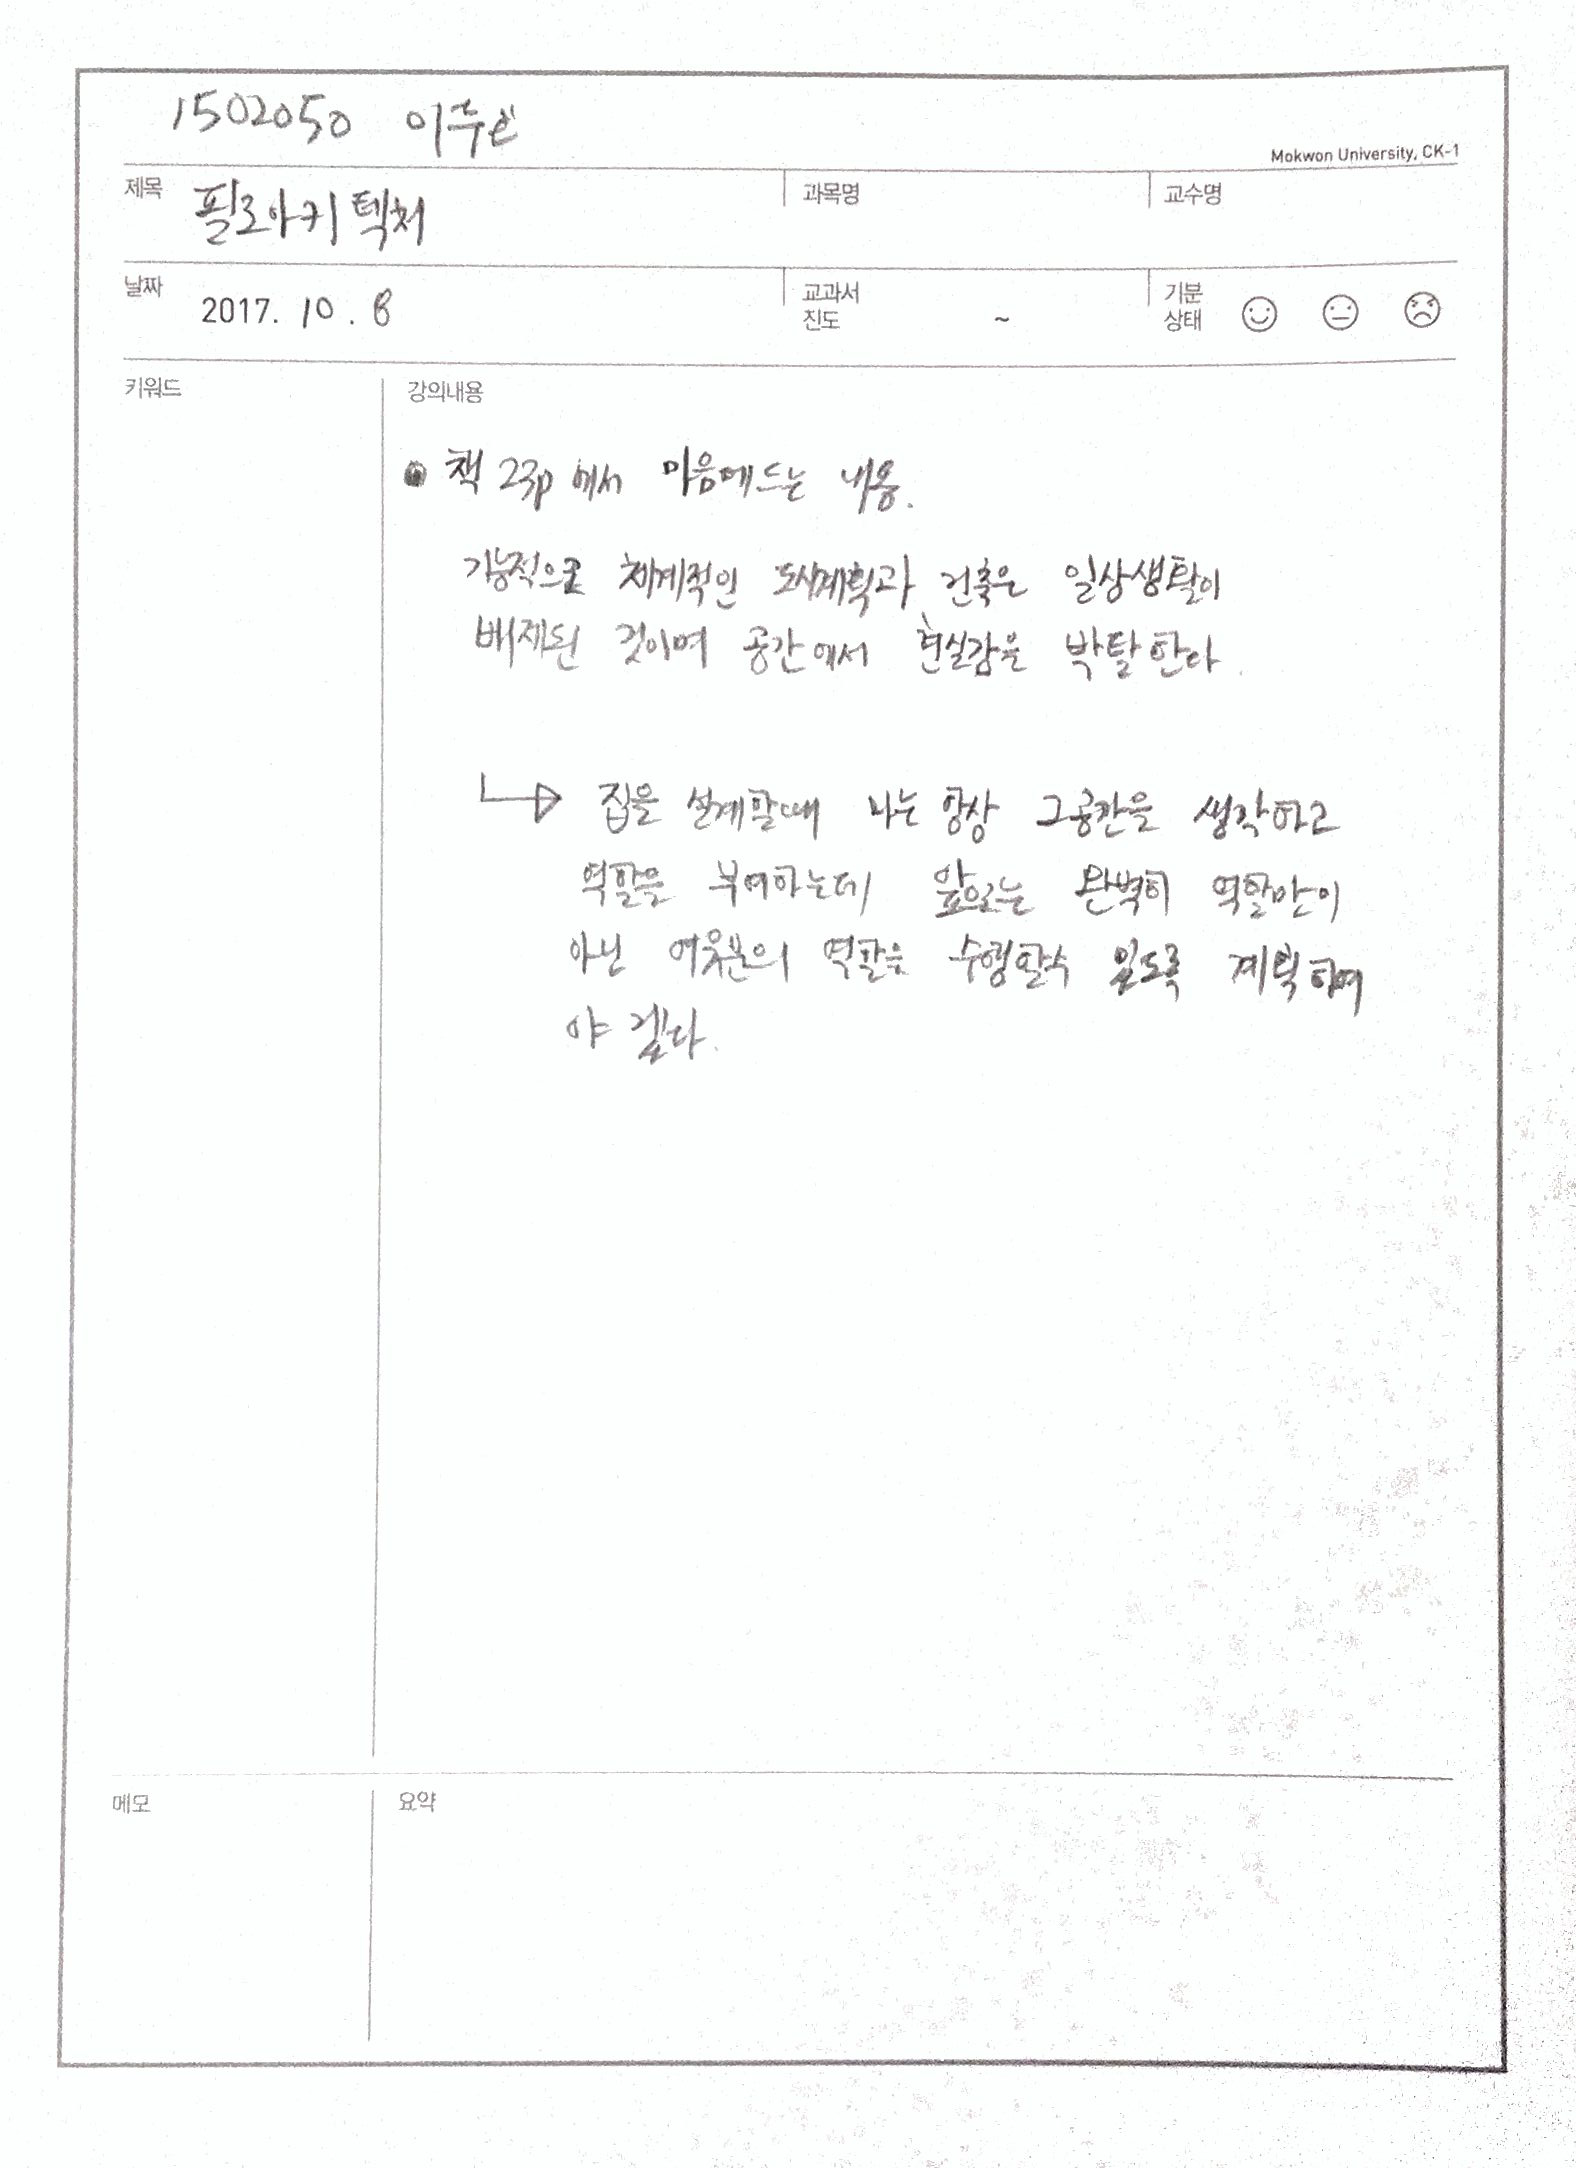 1502050
Mokwon University, CK-1
제목 필로아키텍처 과목명 교수명
날짜 2017. 10. 8 교과서 진도 ~ 기분 상태
키워드 강의내용
● 책 23p에서 마음에드는 내용.
기능적으로 체계적인 도시계획과 건축은 일상생활이
배제된 것이며 공간에서 현실감을 박탈한다.
집을 설계할때 나는 항상 그공간을 생각하고
역할을 부여하는데 앞으로는 완벽히 역할만이
아닌 여웃분의 역할을 수행할수 있도록 계획하여
야 겠다.
메모 요약